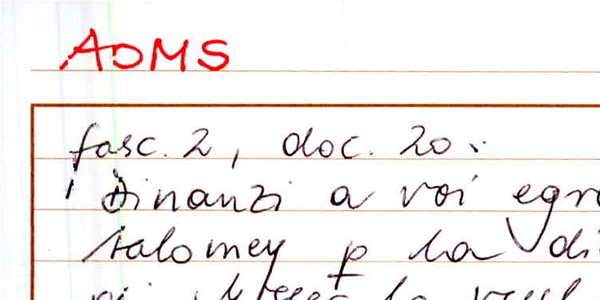 ADMS
fasc. 2, doc. 20:
Dinanzi a voi egr
salomey p la di